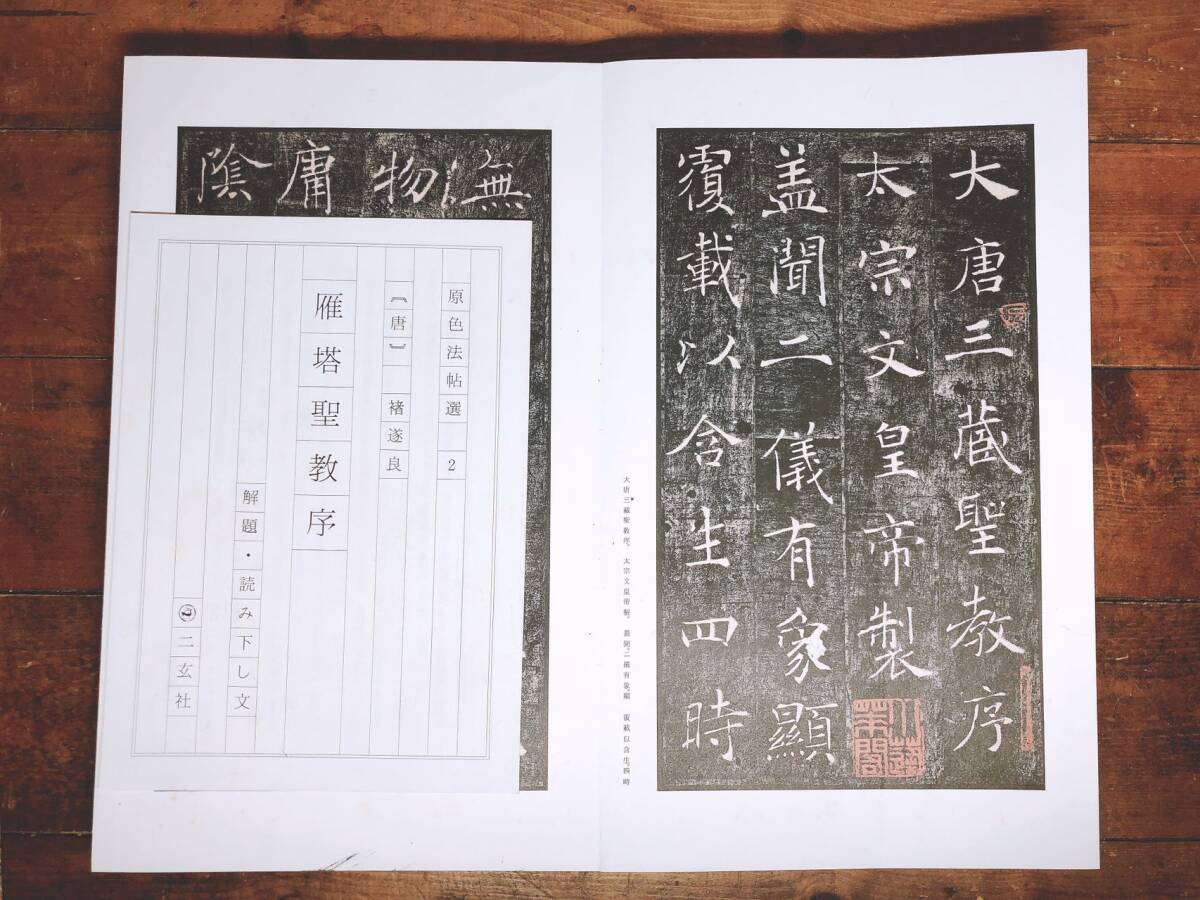 大唐三蔵聖教序
太宗文皇帝製
盖聞二儀有象顯
覆載以含生四時
大唐三藏聖教序。 太宗文皇帝製。 蓋聞、二儀有象、顯 覆載以含生。四時
無
物
庸
陰
原色法帖選 2
〔唐〕 褚遂良
雁塔聖教序
解題・読み下し文
二玄社